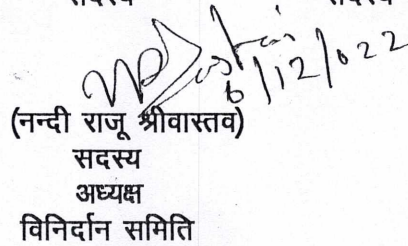 6/12/022
(नन्दी राजू श्रीवास्तव)
सदस्य
अध्यक्ष
विनिर्दान समिति